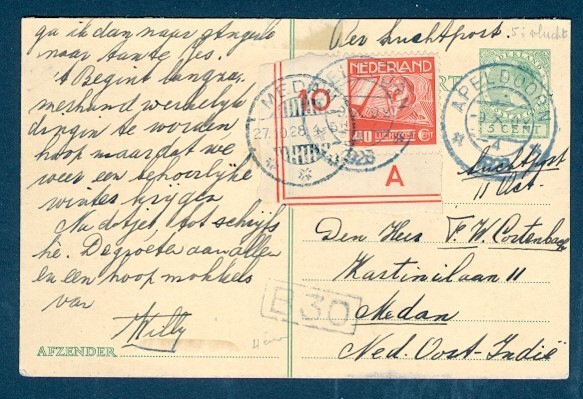 ga ik dan naar
naar tante Jes.
't Begint langza
merhand werkelijk
dingin te worden
hoop maar dat we
weer een behoorlijke
winter krijgen
Na dotjet tot schrijf
he. De groeten aan allen
en een hoop
van
Willy
AFZENDER
Per Luchtpost.
5e vlucht
NEDERLAND
10
40 CENT
A
MEDAN
27.10.28
1928
APELDOORN
4
1928
5 CENT
Luchtpost
Den Heer F. W. Cortenbag
Kartinilaan 11
Medan
Ned. Oost-Indië
B 30